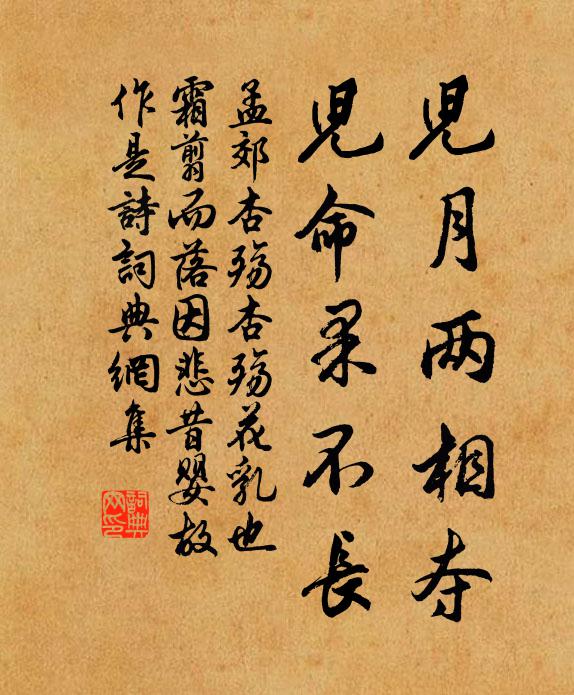 児月两相夺
児命果不長
孟郊杏殤杏殤花乳也
霜翦而落因悲昔嬰故
作是詩詞典網集
詞典
网印